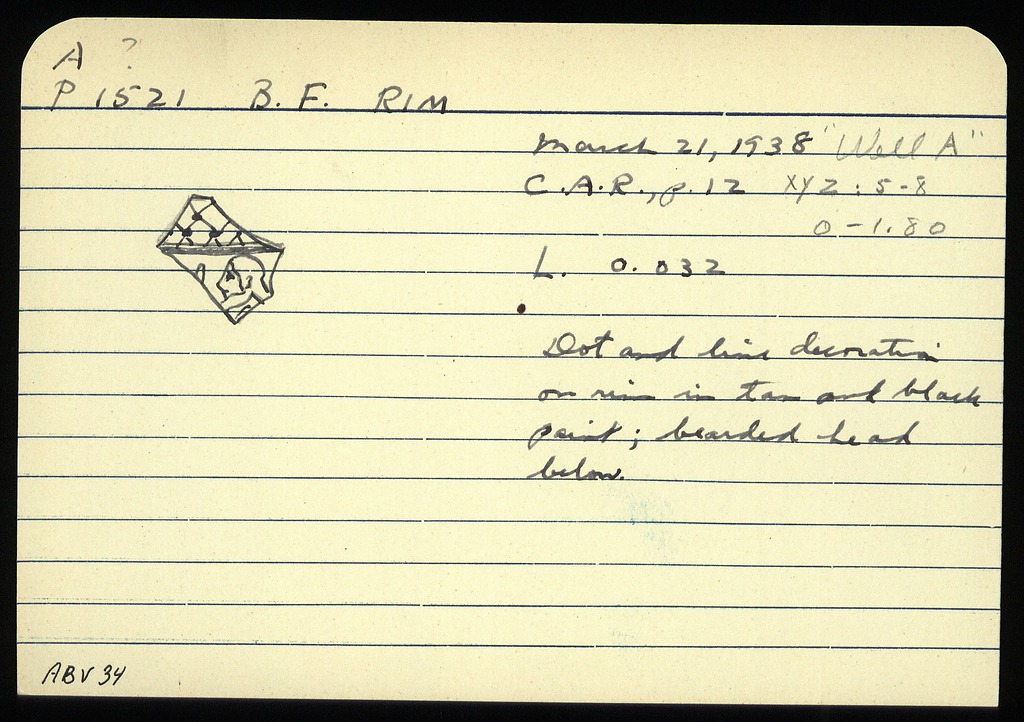 A ?
P 1521 B. F. RIM
March 21, 1938 "Well A"
C.A.R., p. 12 XYZ : 5-8
0-1.80
L. 0.032
Dot and line decoration
on rim in tan and black
paint; bearded head
below.
ABV 34